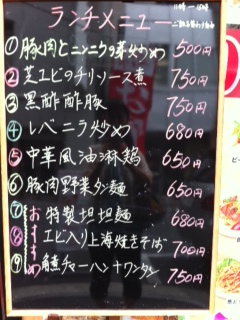 ランチメニュー
①豚肉とニンニクの芽炒め 500円
②芝エビのチリソース煮 750円
③黒酢酢豚 750円
④レバニラ炒め 680円
⑤中華風油淋鶏 650円
⑥豚肉野菜タン麺 650円
おすすめ
⑦特製担担麺 680円
⑧エビ入り上海焼きそば 700円
⑨チャーハン+ワンタン 750円